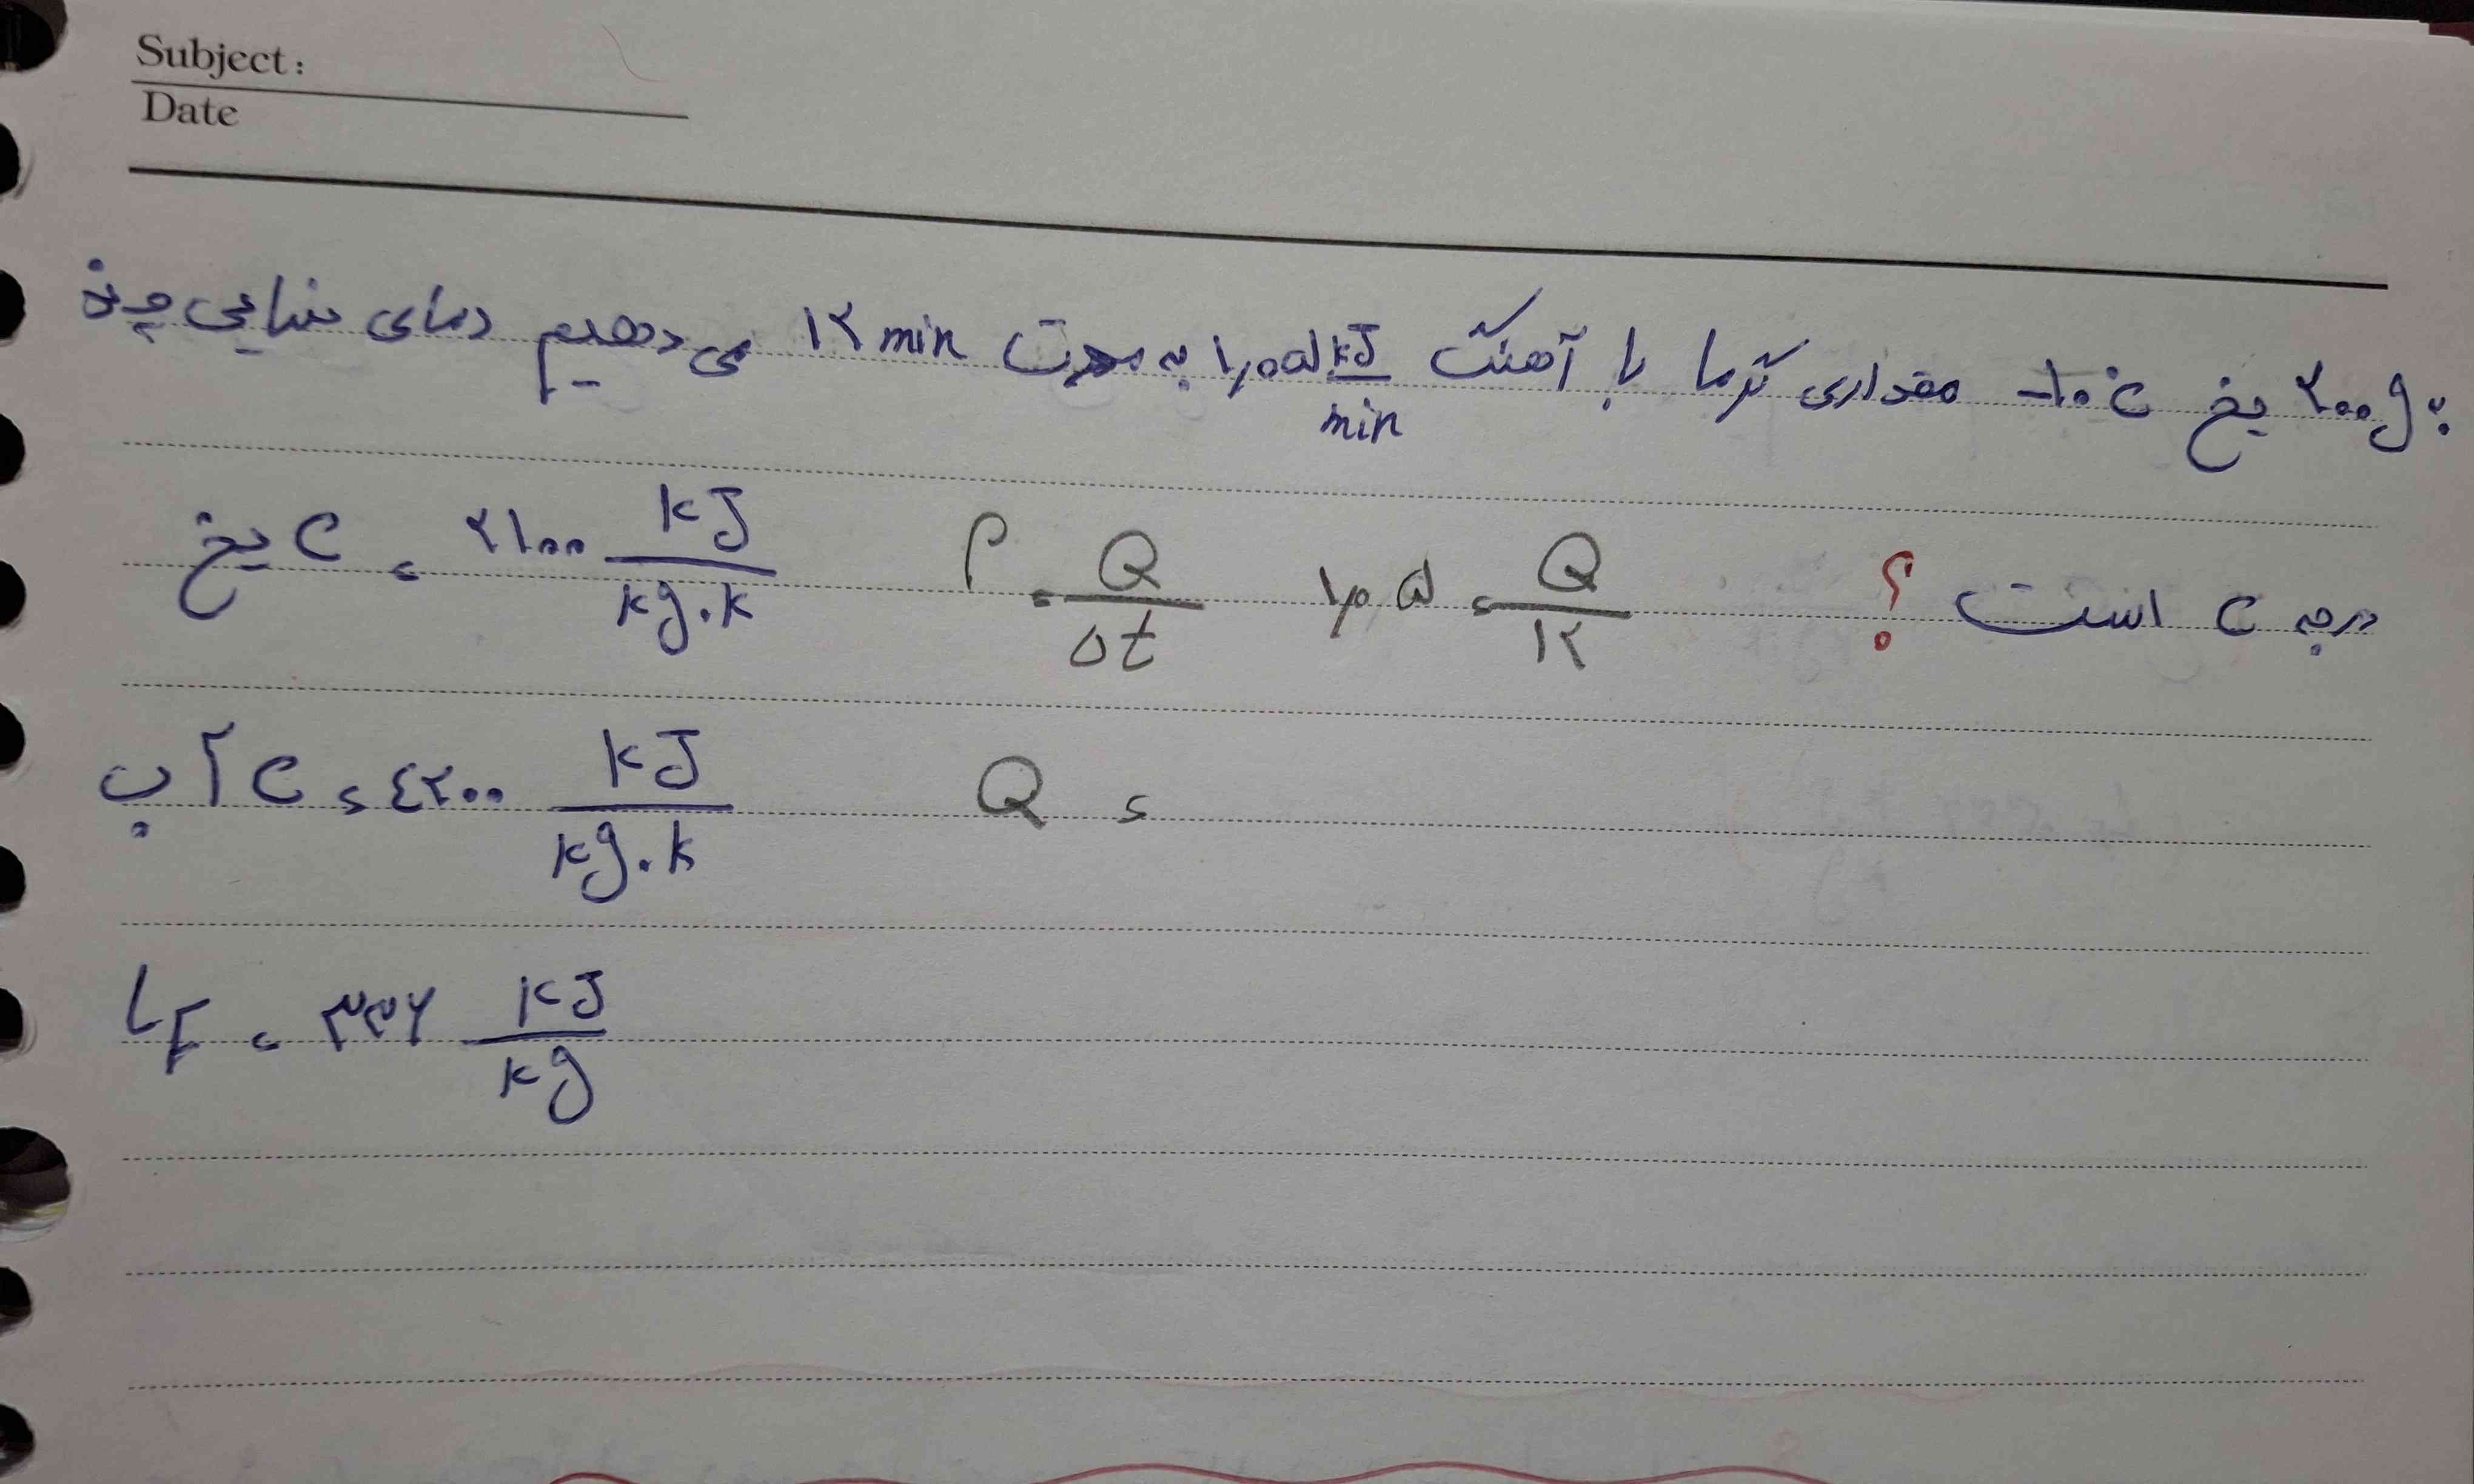 Subject:
Date
به ۲۰۰g یخ -۱۰°C مقداری گرما با آهنگ ۱٫۰۵ kJ/min به مدت ۱۲ min می دهیم دمای نهایی چند
درجه C است ؟ ۱٫۰۵ = Q/۱۲ P = Q/Δt C یخ = ۲۱۰۰ kJ/kg.k
Q = C آب = ٤۲۰۰ kJ/kg.k
LF = ۳۳۶ kJ/kg